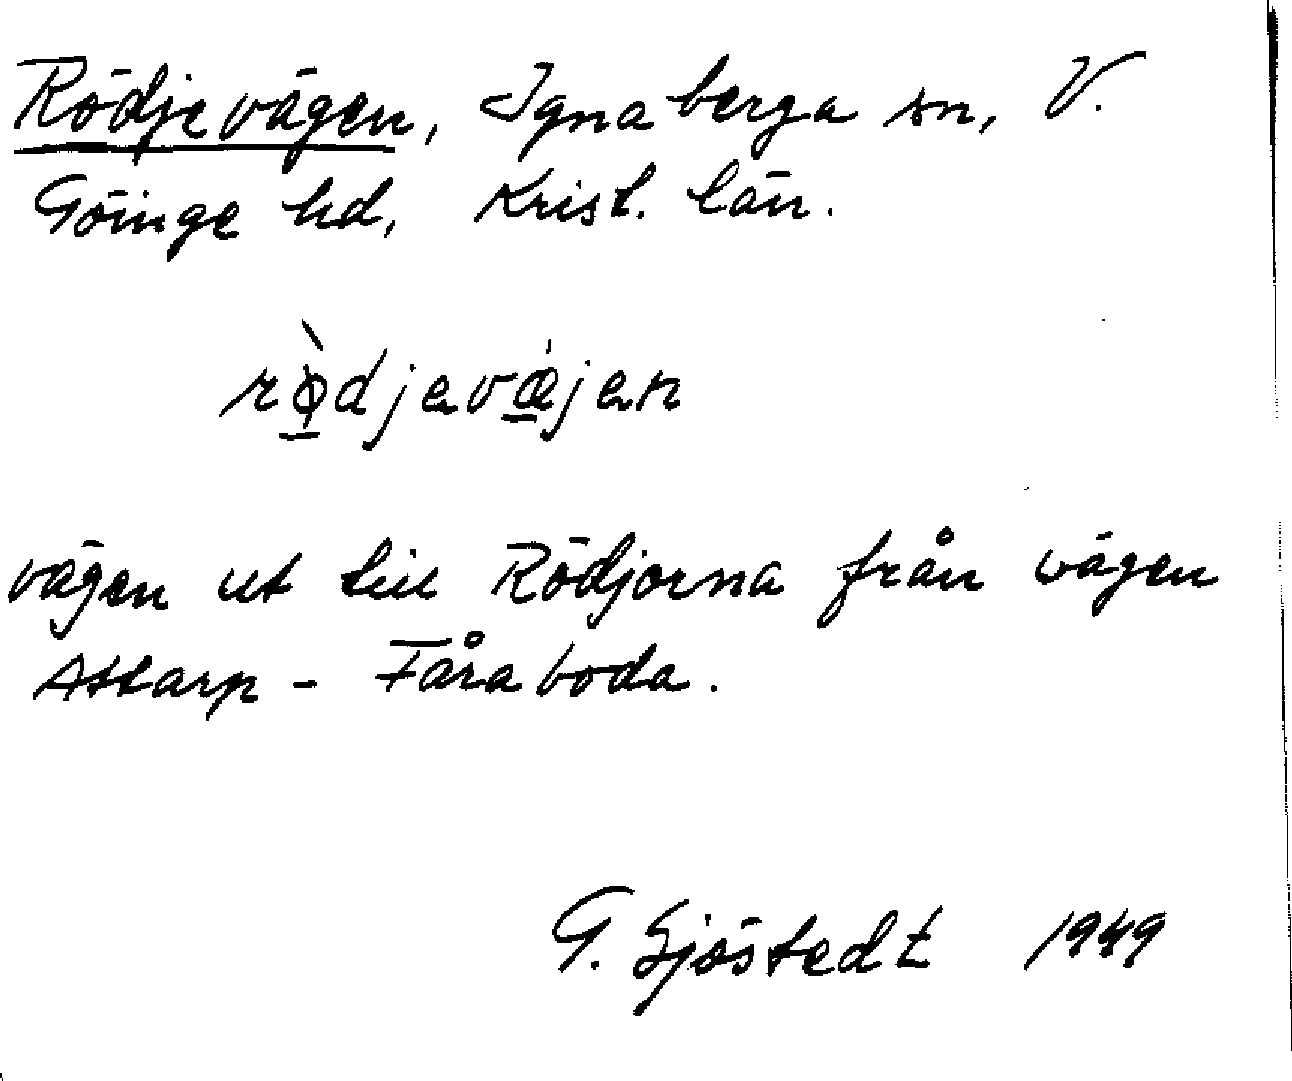 Rödjevägen, Ignaberga sn, V.
Göinge hd, Krist. län.
rø̀djevæjen
vägen ut till Rödjorna från vägen
Attarp - Fåraboda.
G. Sjöstedt 1949